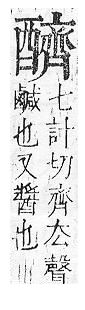 七計切齊厺聲
鹹也又醬也